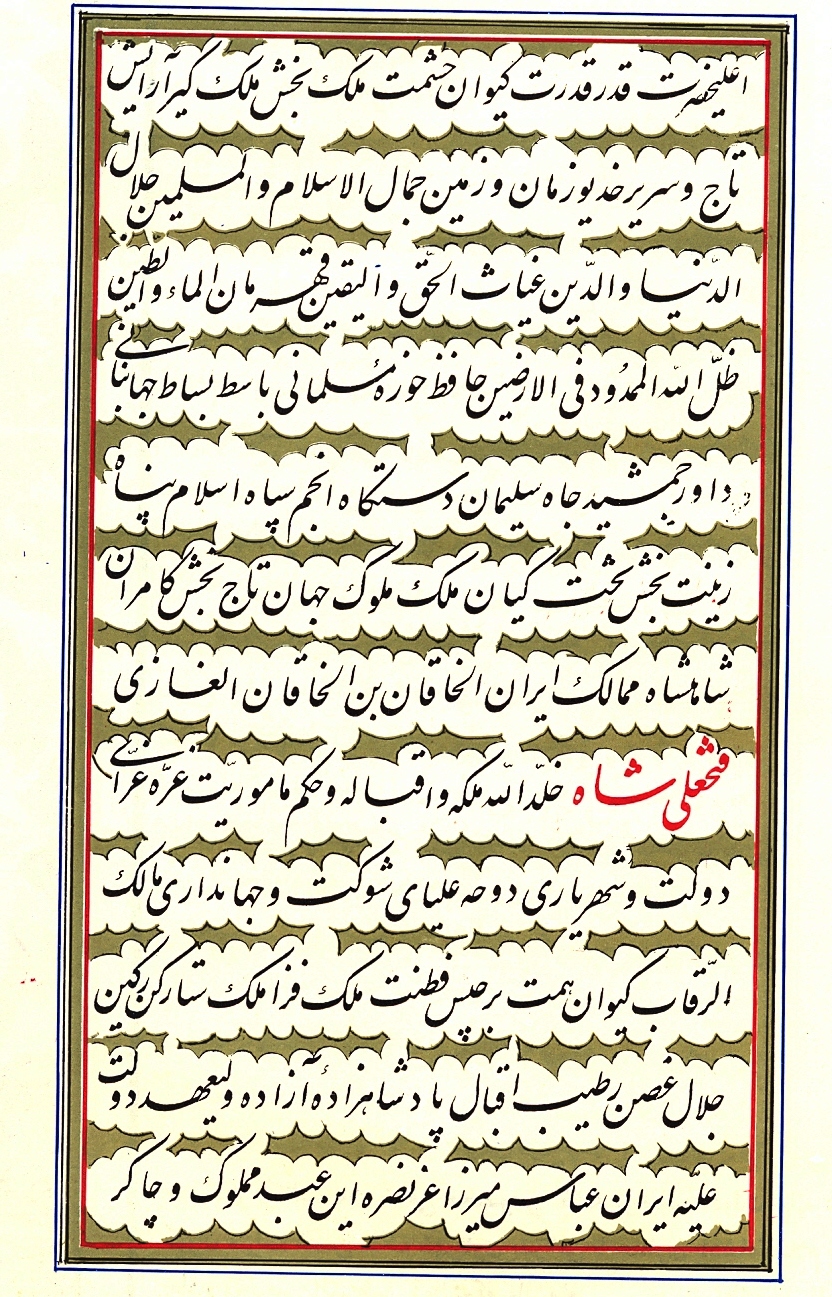 اعلیحضرت قدرقدرت کیوان حشمت ملک بخش ملک گیر آرایش
تاج و سریر خدیو زمان و زمین جمال الاسلام والمسلمین جلال
الدّنیا والدّین غیاث الحقّ والیقین قهرمان الماء والطین
ظلّ الله الممدُود فی الارضین حافظ حوزهٔ مسلمانی باسط بساط جهانبانی
داور جمشید جاه سلیمان دستگاه انجم سپاه اسلام پناه
زینت بخش تخت کیان ملک ملوک جهان تاج بخش کامران
شاهنشاه ممالک ایران الخاقان بن الخاقان الغازی
فتحعلی شاه خلّد الله ملکه و اقباله و حکم ماموریّت غرّه غرّای
دولت و شهریاری دوحه علیای شوکت و جهانداری مالک
الرّقاب کیوان همت برجیس فطنت ملک فزا ملک ستا رکن رکین
جلال غصن رطیب اقبال پادشاهزادهٔ آزاده ولیعهد دولت
علیّه ایران عباس میرزا عز نصره این عبد مملوک و چاکر